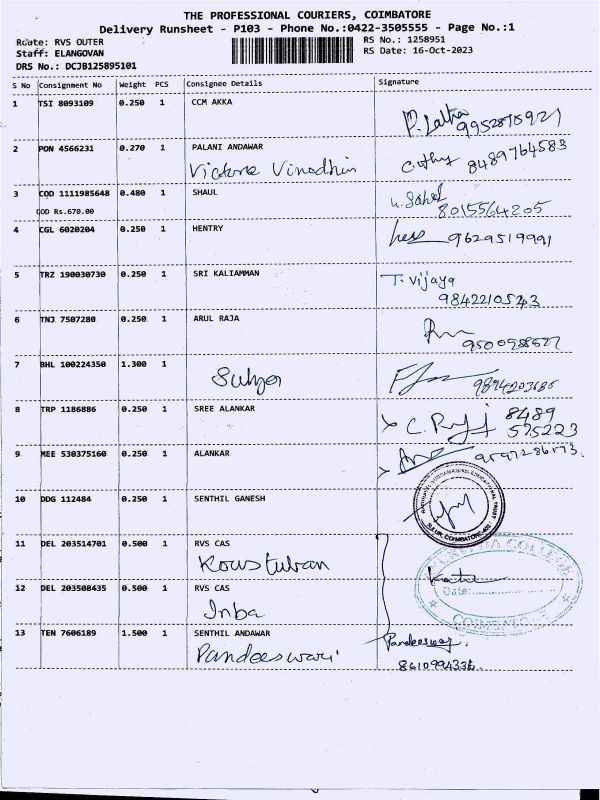 THE PROFESSIONAL COURIERS, COIMBATORE
Delivery Runsheet - P103 - Phone No.:0422-3505555 - Page No.:1
Route: RVS OUTER
RS No.: 1258951
Staff: ELANGOVAN
RS Date: 16-Oct-2023
DRS No.: DCJB125895101
S No Consignment No Weight PCS Consignee Details Signature
1 TSI 8093109 0.250 1 CCM AKKA
P. Latha
9952875921
2 PON 4566231 0.270 1 PALANI ANDAWAR
Victoria Vinodhin
8489764583
3 COD 1111985648 0.480 1 SHAUL
COD Rs.670.00
8015564205
4 CGL 6020204 0.250 1 HENTRY
9629519991
5 TRZ 190030730 0.250 1 SRI KALIAMMAN
T. Vijaya
9842210543
6 TNJ 7507280 0.250 1 ARUL RAJA
7 BHL 100224350 1.300 1
9894203686
8 TRP 1186886 0.250 1 SREE ALANKAR
8489
575223
9 MEE 530375160 0.250 1 ALANKAR
10 DDG 112484 0.250 1 SENTHIL GANESH
SULUR, COIMBATORE
11 DEL 203514701 0.500 1 RVS CAS
Koustuban
12 DEL 203508435 0.500 1 RVS CAS
Inba
Date:
COIMBATORE
13 TEN 7606189 1.500 1 SENTHIL ANDAWAR
Pandeeswari
Pandeeswari
8610994336